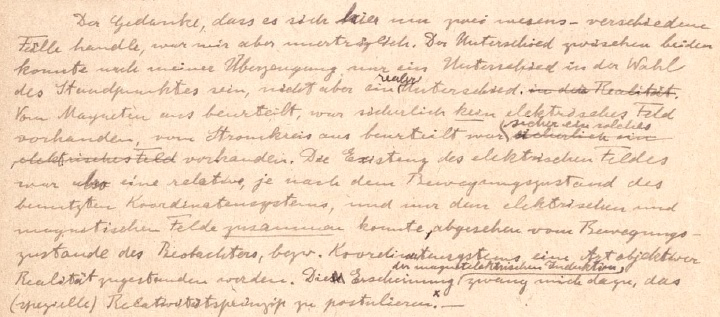 Der Gedanke, dass es sich hier um zwei wesens-verschiedene
Fälle handle, war mir aber unerträglich. Der Unterschied zwischen beiden
konnte nach meiner Überzeugung nur ein Unterschied in der Wahl
des Standpunktes sein, nicht aber ein realer Unterschied. in der Realität.
Vom Magneten aus beurteilt, war sicherlich kein elektrisches Feld
vorhanden, vom Stromkreis aus beurteilt war sicher ein solches sicherlich ein
elektrisches Feld vorhanden. Die Existenz des elektrischen Feldes
war also eine relative, je nach dem Bewegungszustand des
benutzten Koordinatensystems, und nur dem elektrischen und
magnetischen Felde zusammen konnte, abgesehen vom Bewegungs-
zustande des Beobachters, bezw. Koordinatensystems, eine Art objektiver
Realität zugestanden werden. Die Erscheinung der magnetelektrischen Induktion zwang mich dazu, das
(spezielle) Relativitätsprinzip zu postulieren.x—